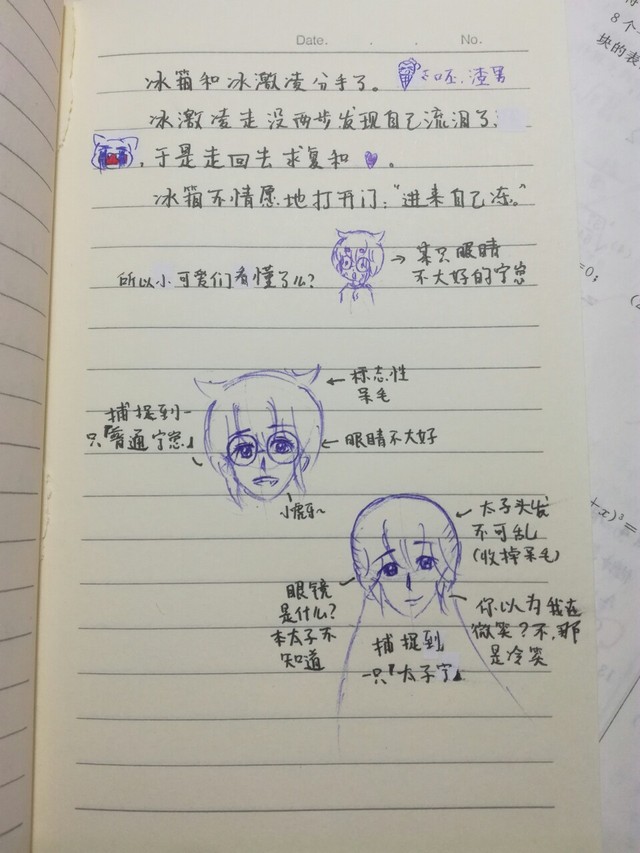 Date. . . No.
冰箱和冰激凌分手了。
呸.渣男
冰激凌走没两步发现自己流泪了,
,于是走回去求复和 。
冰箱不情愿地打开门:“进来自己冻。”
所以小可爱们看懂了么?
→ 某只眼睛
不大好的宁崽
← 标志性
呆毛
捕捉到一
只『普通宁崽』
← 眼睛不大好
小虎牙~
太子头发
不可乱
(收掉呆毛)
眼镜
是什么?
本太子不
知道
你以为我在
微笑?不,那
是冷笑
捕捉到
一只『太子宁』
8个
块的表
=0;
(2
+x)²=